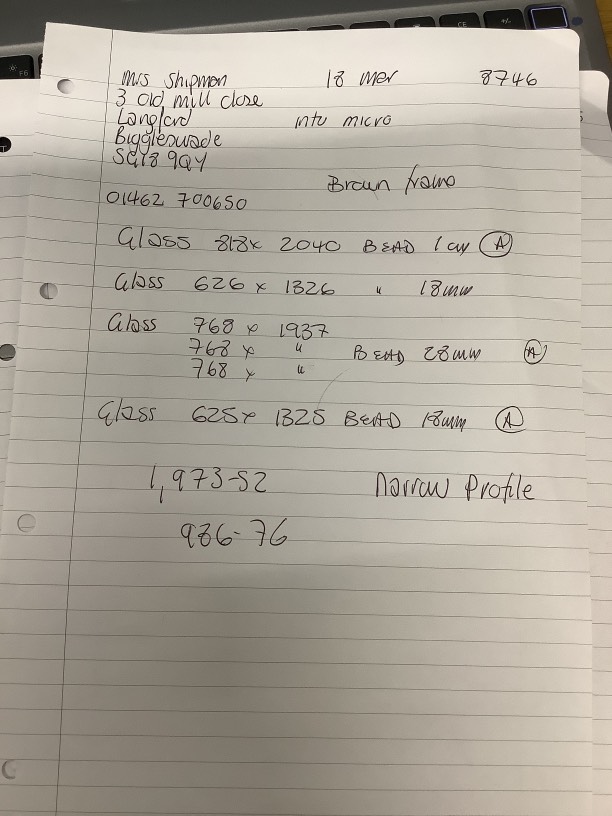 Mrs Shipman 18 Mar 8746
3 old mill close
Langford intu micro
Biggleswade
SG18 9QY
Brown frame
01462 700650
Glass 818x 2040 BEAD 1 cm A
Glass 626 x 1326 " 18mm
Glass 768 x 1937
768 x " BEAD 28mm A
768 x "
Glass 625x 1325 BEAD 18mm A
1,973-52 narrow Profile
986-76